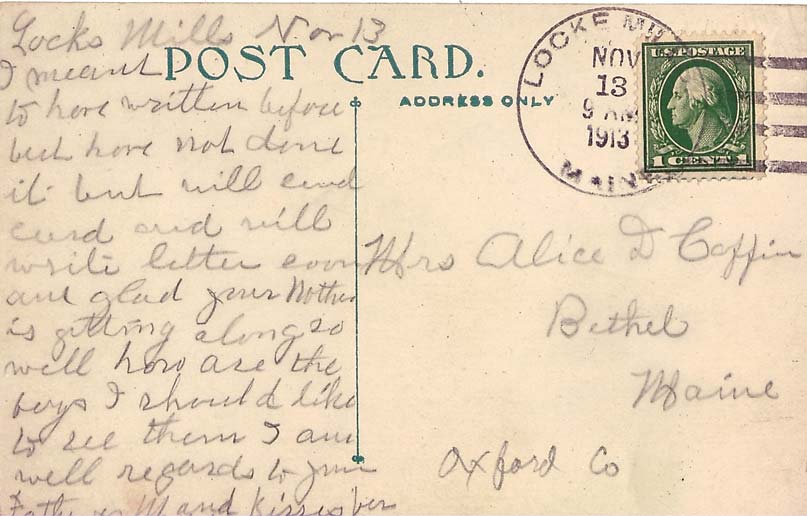 Locks Mills Nov 13
I meant
to have written before
but have not done
it but will send
card and will
write letter soon
am glad your Mother
is getting along so
well how are the
boys I should like
to see them I am
well regards to your
Father & M and Kisses
POST CARD.
ADDRESS ONLY
LOCKE MI
NOV
13
9 AM
1913
MAINE
U.S. POSTAGE
1 CENT 1
Mrs Alice D Coffin
Bethel
Maine
Oxford Co